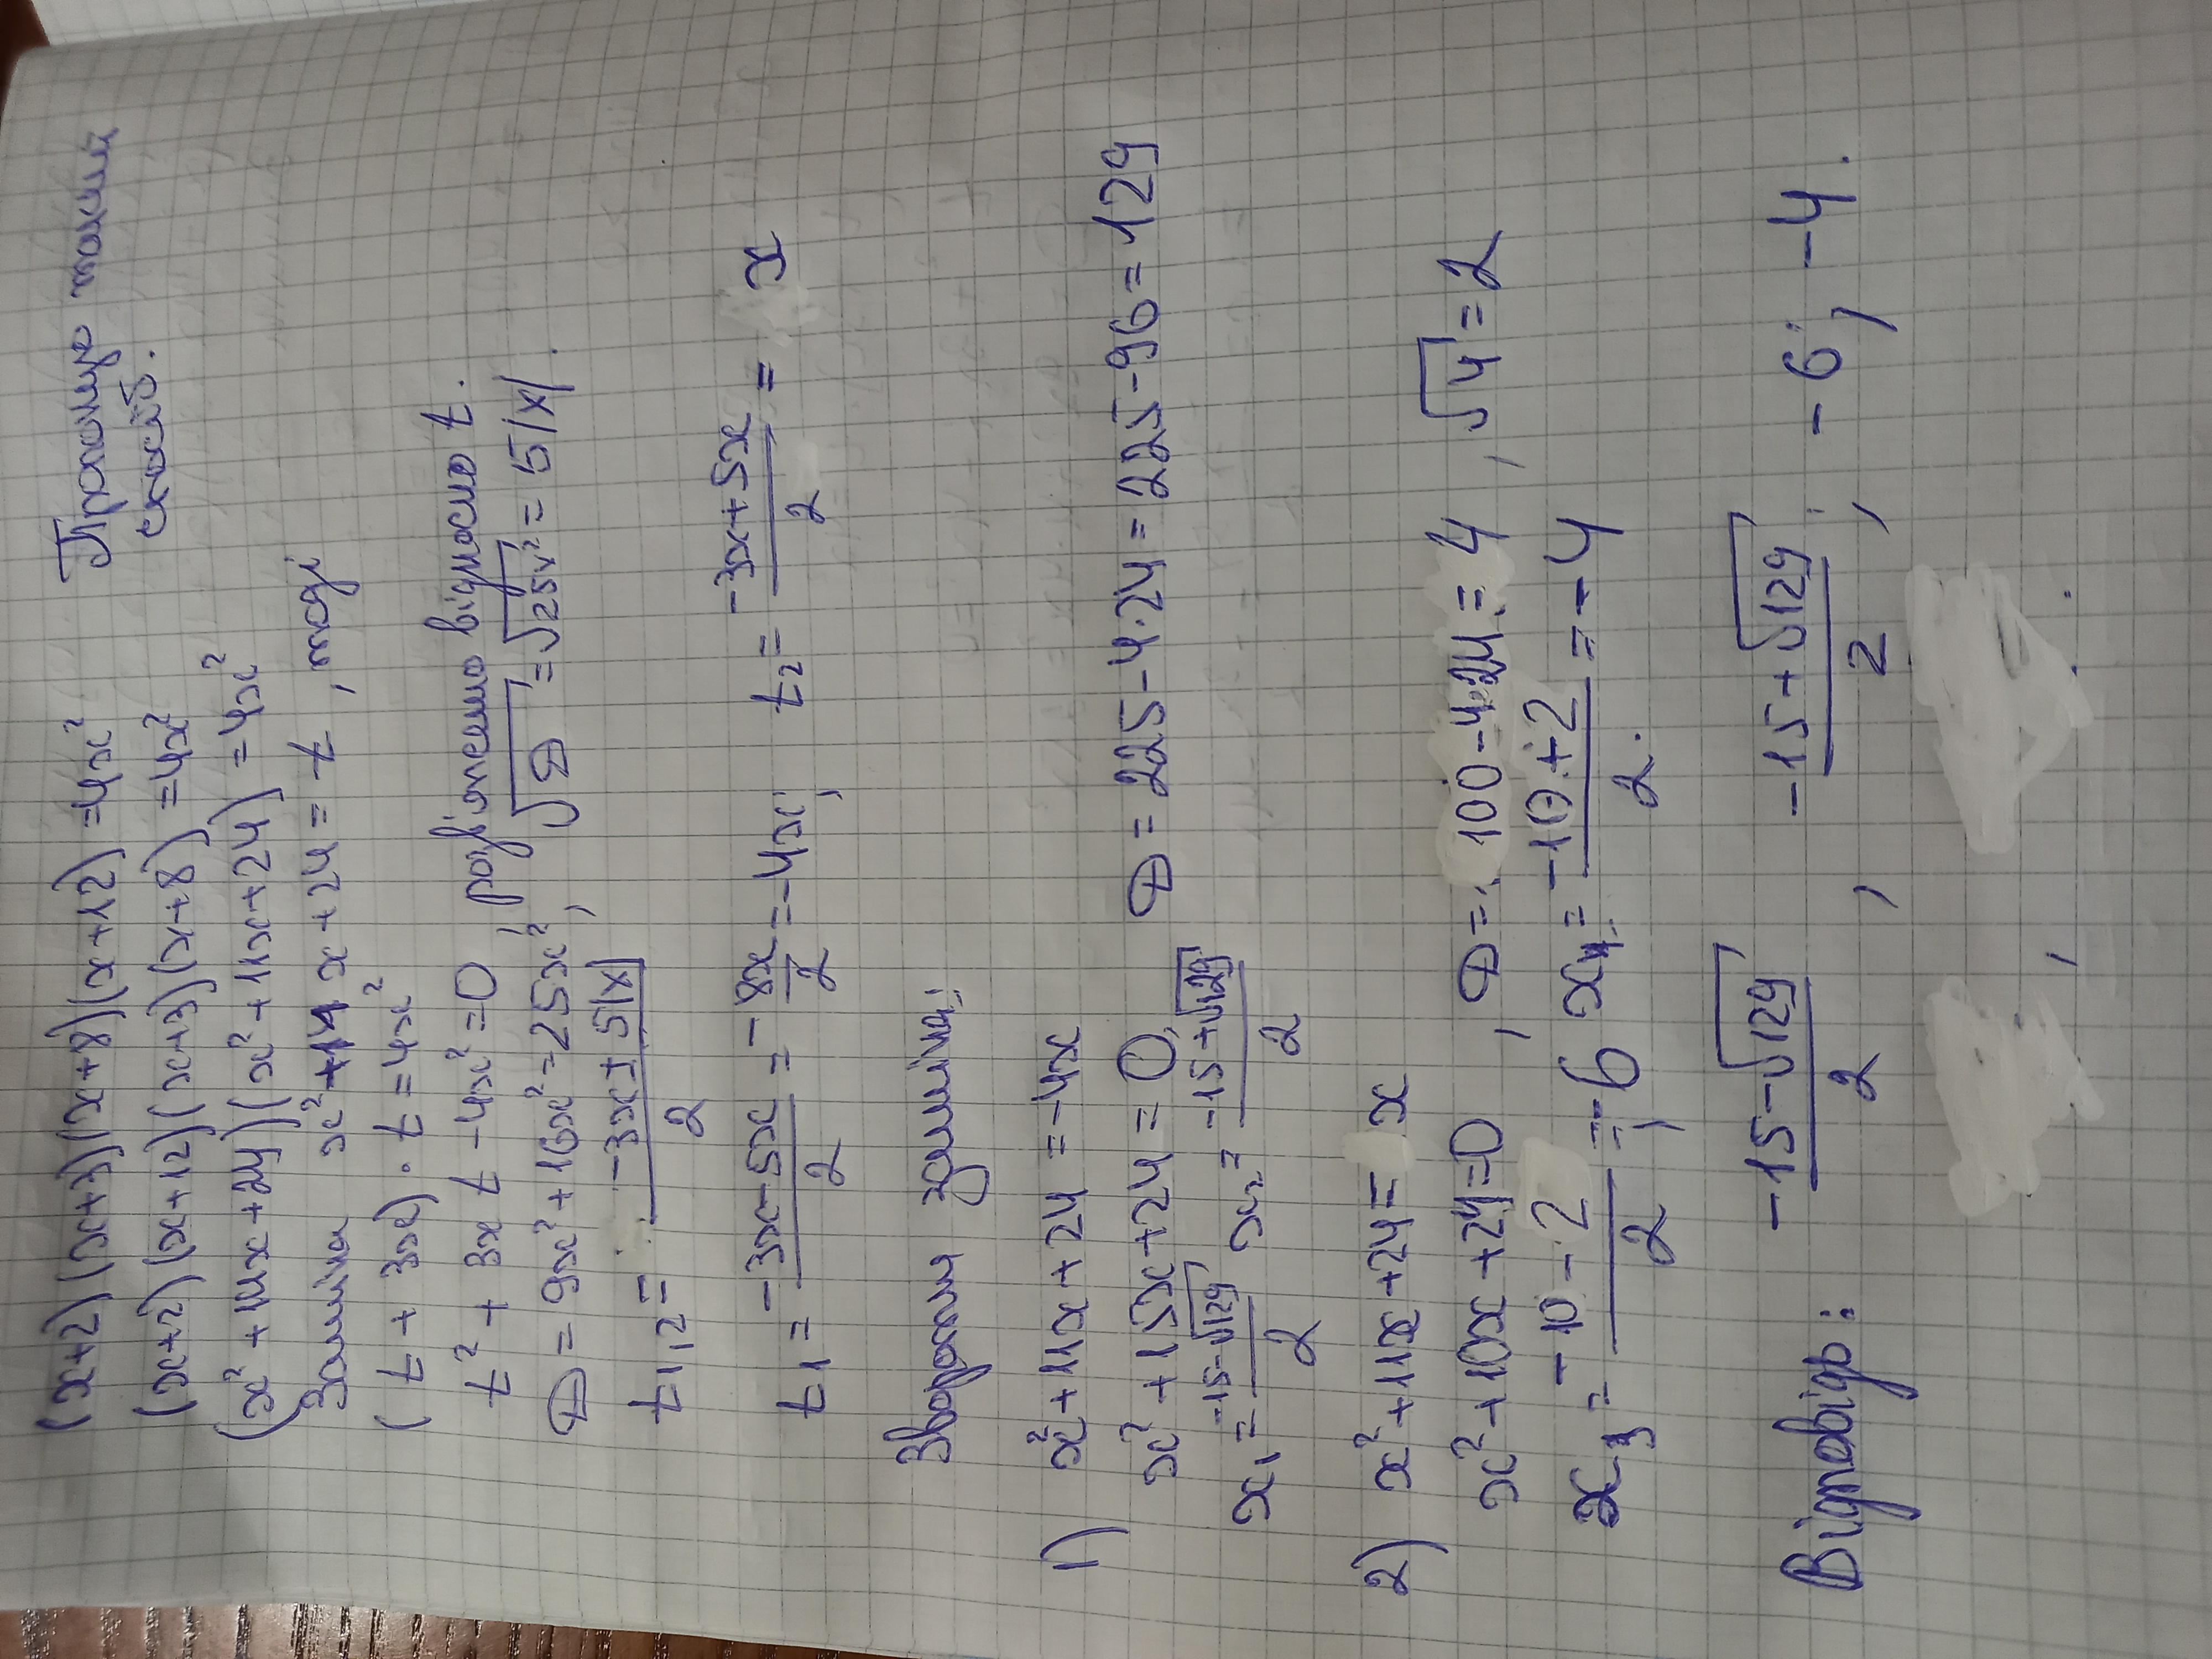 Пропоную такий
спосіб.
(x+2)(x+3)(x+8)(x+12)=4x²
(x+2)(x+12)(x+3)(x+8)=4x²
(x²+14x+24)(x²+11x+24)=4x²
Заміна x²+11x+24=t, тоді
(t+3x)·t=4x²
t²+3xt-4x²=0, розв'яжемо відносно t.
D=9x²+16x²=25x², √D=√25x²=5|x|.
t1,2=(-3x±5|x|)/2
t1=(-3x-5x)/2=-8x/2=-4x; t2=(-3x+5x)/2=x
Зворотня заміна:
1) x²+11x+24=-4x
x²+15x+24=0, D=225-4·24=225-96=129
x1=(-15-√129)/2 x2=(-15+√129)/2
2) x²+11x+24=x
x²+10x+24=0, D=100-4·24=4, √4=2
x3=(-10-2)/2=-6; x4=(-10+2)/2=-4
Відповідь: (-15-√129)/2, (-15+√129)/2; -6; -4.